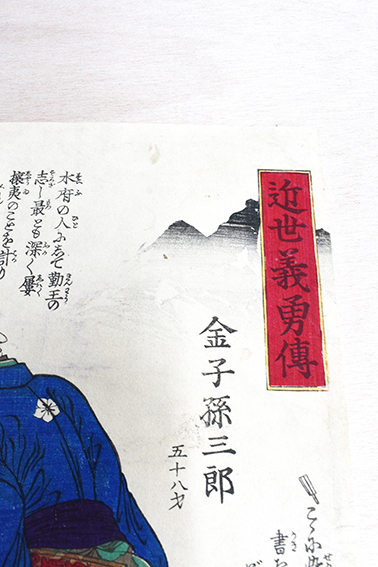 近世義勇傳
金子孫三郎
五十八才
水府の人にして勤王の
志し最とも深く屡
攘夷のことを計り